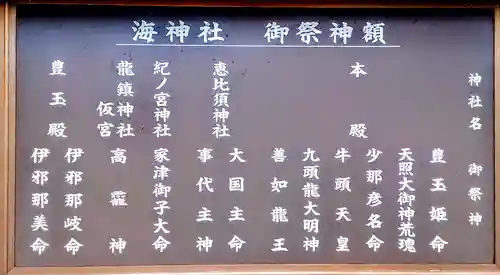 海神社 御祭神額
神社名 御祭神
本殿
豊玉姫命
天照大御神荒魂
少那彦名命
牛頭天皇
九頭龍大明神
善如龍王
恵比須神社
大国主命
事代主神
紀ノ宮神社 家津御子大命
龍鎮神社 高龗神
仮宮
豊玉殿
伊邪那岐命
伊邪那美命